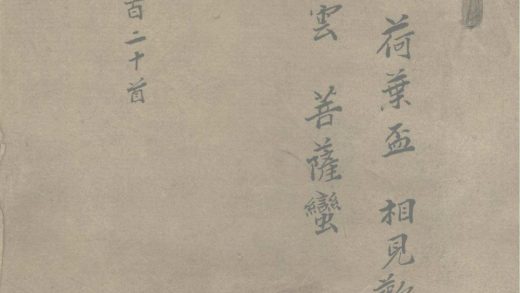 荷葉盃 相見
雲 菩薩蠻
百二十首